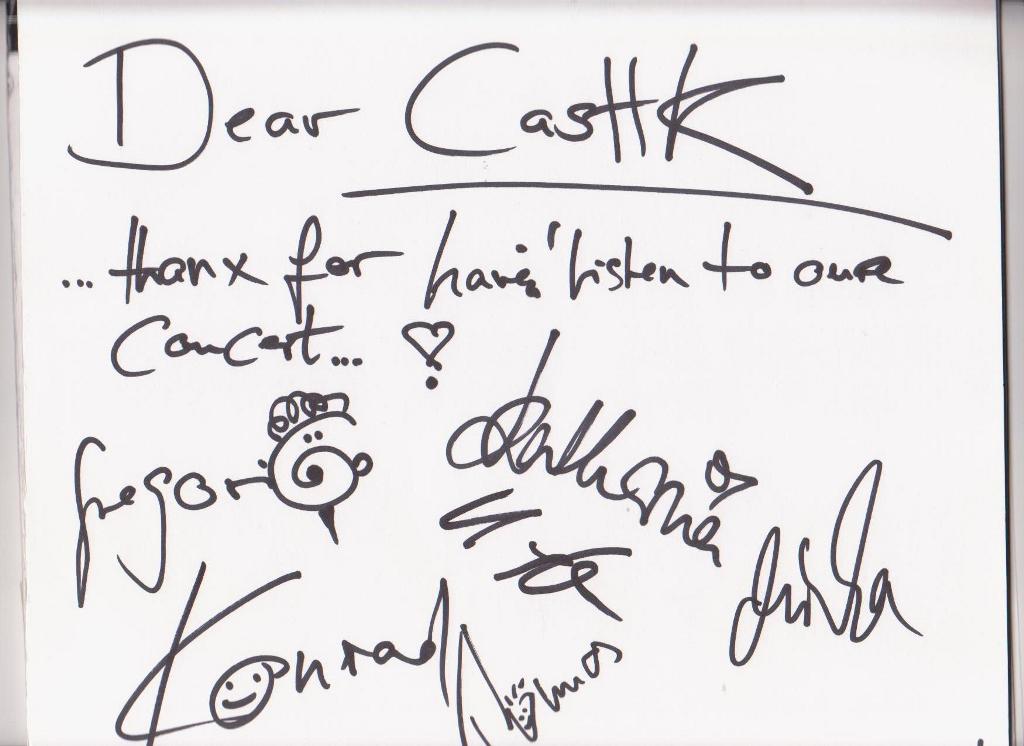 Dear CasHK
...thanx for havin' listen to oure
concert...
Gregor
Konrad